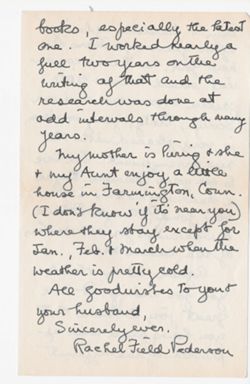 books, especially the latest
one. I worked nearly a
full two years on the
writing of that and the
research was done at
odd intervals through many
years.
My mother is living & she
& my Aunt enjoy a little
house in Farmington, Conn.
(I don't know if it's near you)
where they stay except for
Jan., Feb. & March when the
weather is pretty cold.
All good wishes to you &
your husband,
Sincerely ever,
Rachel Field Pederson